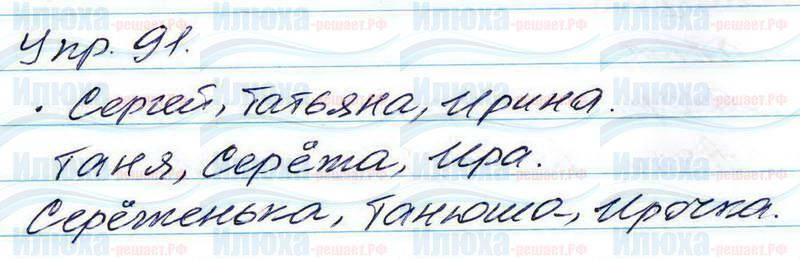 Упр. 91.
. Сергей, Татьяна, Ирина.
Таня, Серёжа, Ира.
Серёженька, Танюша, Ирочка.